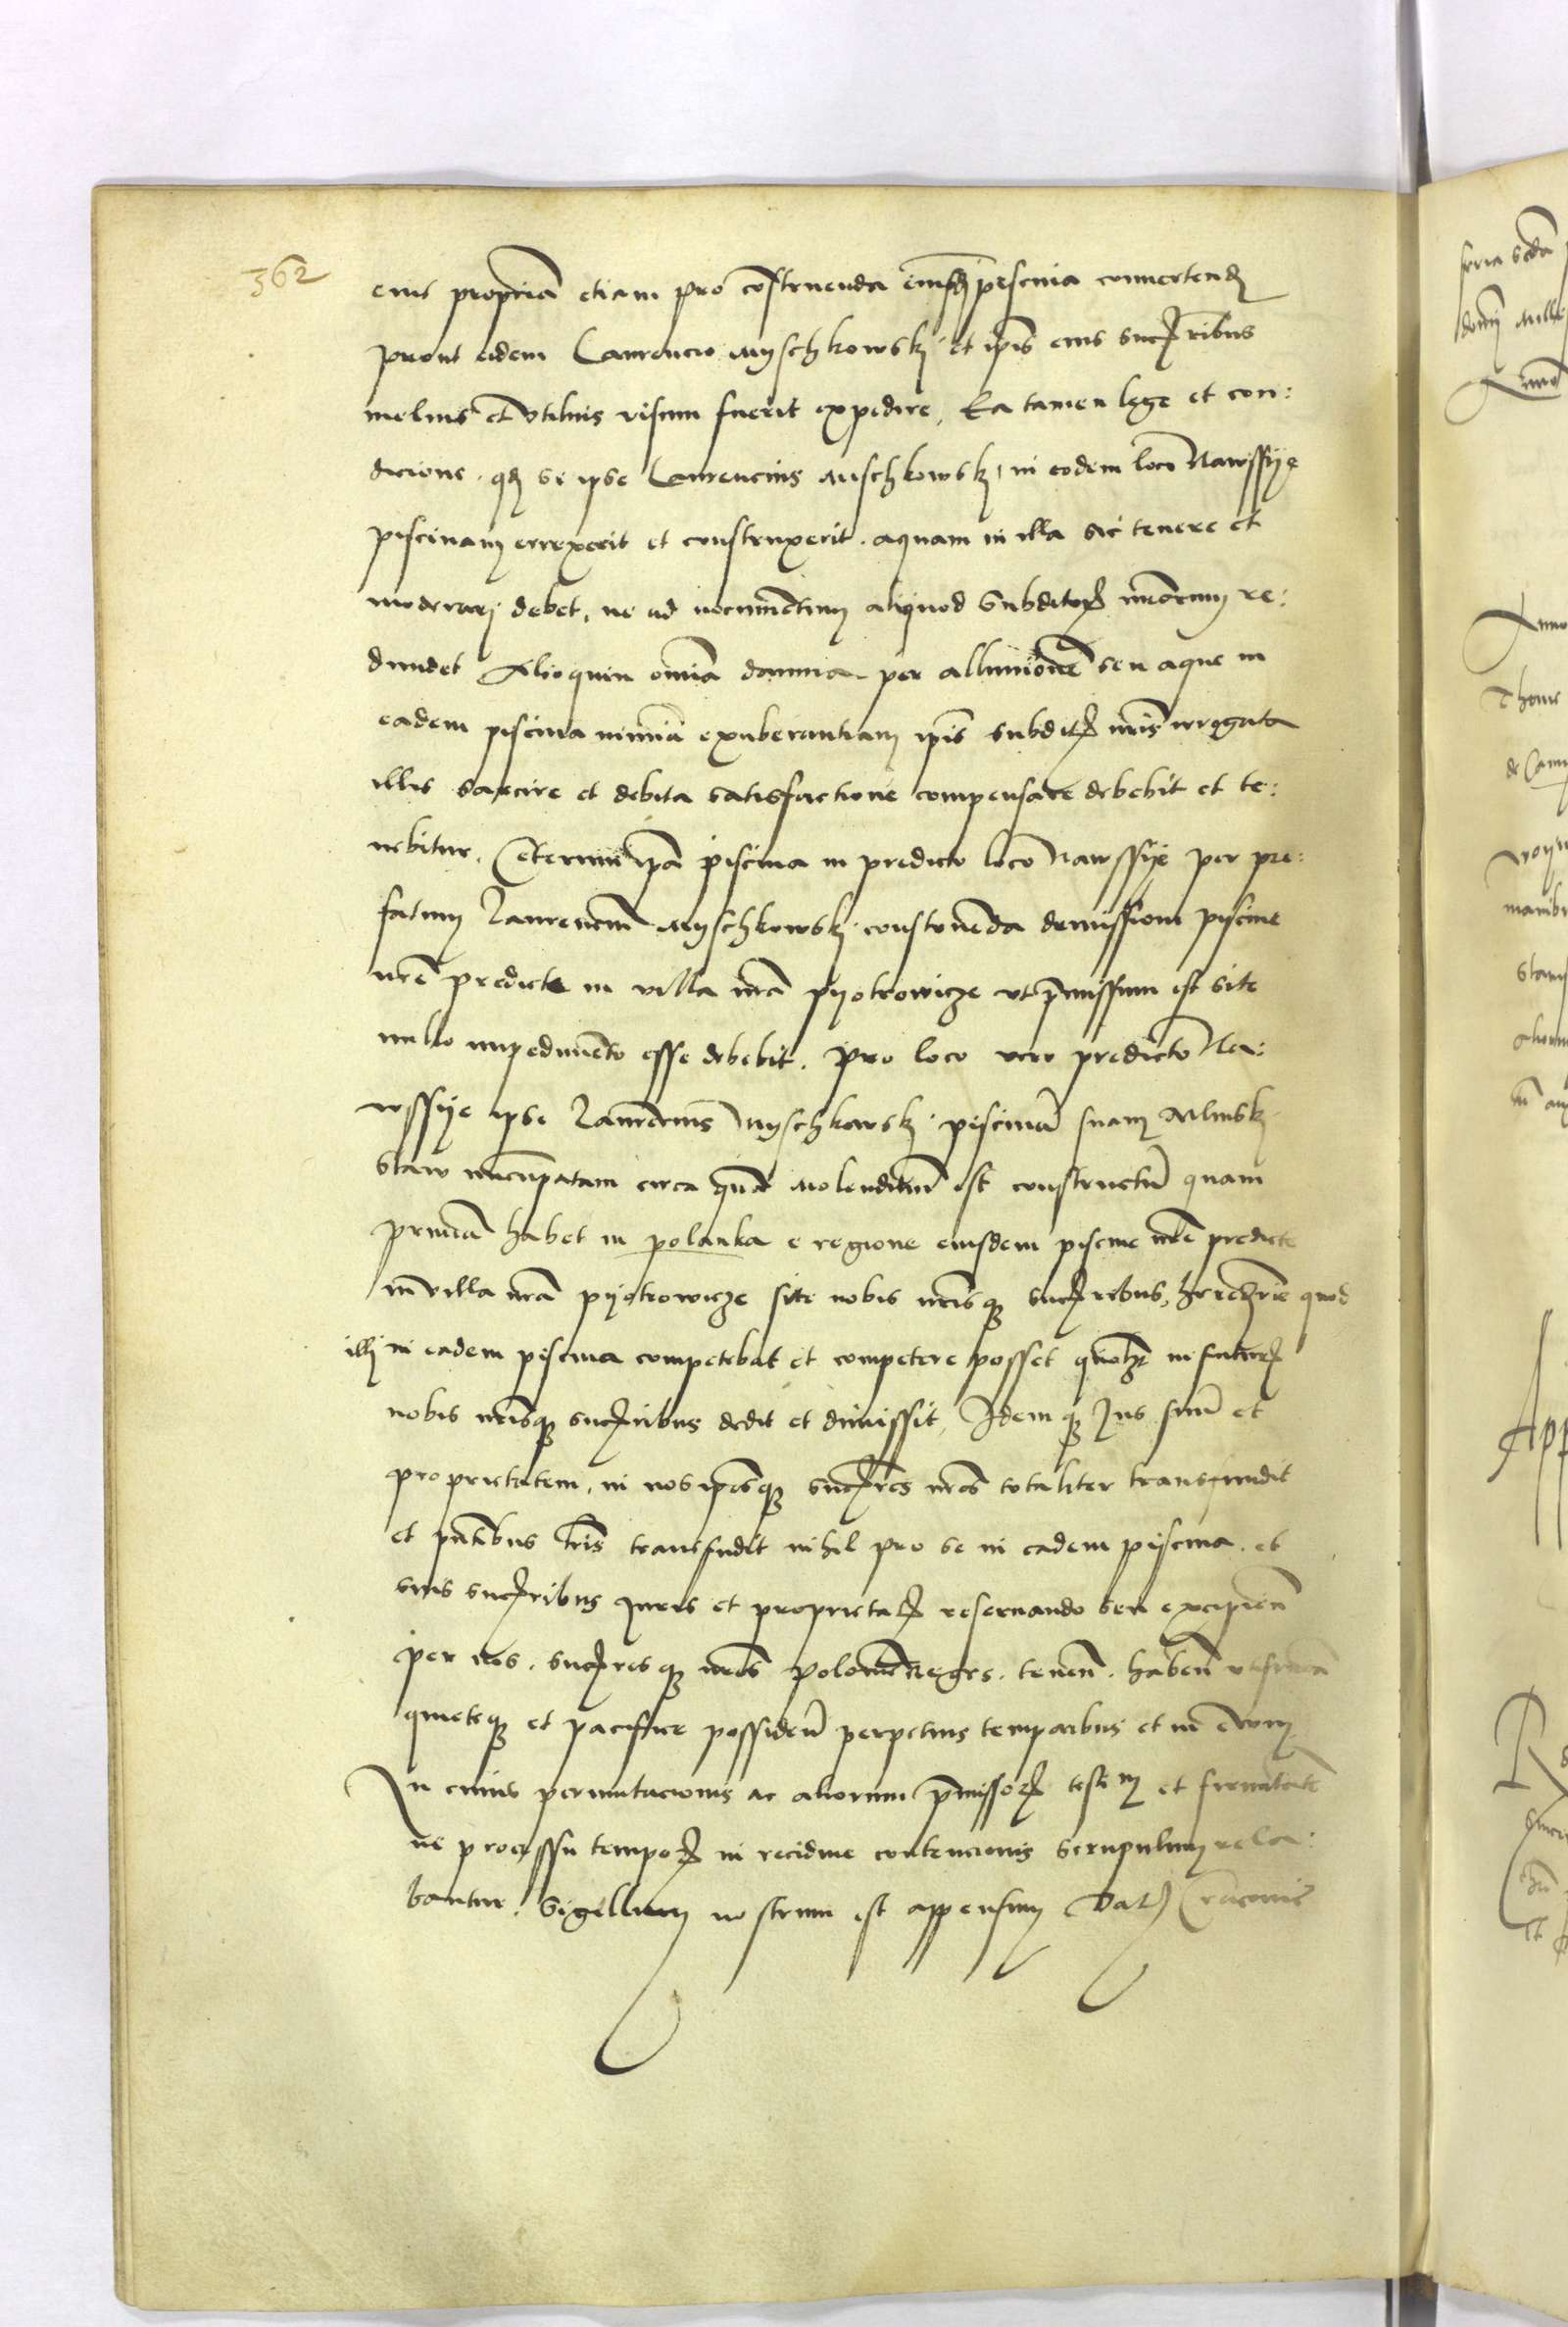 362
eius propriam̃ etiam pro cõstruenda eiusdẽ piscina conuertendũ
prout eidem Laurencio Myschkowskj et ip̃is eius succ̃ribus
melius et vtilius visum fuerit expedire, Ea tamen lege et con:
dicione. qđ si ipse Laurencius Mischkowskj, in eodem loco Nawssỹe
piscinam errexerit et construxerit. aquam in illa sic tenere et
moderarj debet, ne ad nocumẽtum aliquod Subditoꝝ nr̃orum re:
dundet Alioquin om̃ia damna per alluuionẽ seu aque in
eadem piscina nimiã exuberantiam ip̃is subditꝭ nr̃is irrogata
illis sarcire et debita satisfactione compensare debebit et te:
nebitur. Ceterum ip̃a piscina in predicto loco Nawssỹe per pre:
fatum Laurenciũ Myschkowskj construẽda demissioni piscine
nr̃e predicte in villa nr̃a pyotrowicze vt p̃missum est site
nullo impedimẽto esse debebit. Pro loco vero predicto Na:
wssỹe ipse Laurẽcius Myschkowskj piscinã suam Mlinskj
staw nuncupatam circa quã molendinũ est constructũ quam
primam habet in polanka e regione eiusdem piscine nr̃e predicte
in villa nr̃a pyotrowicze site nobis nr̃isqꝫ succ̃ribus, quod
illj in eadem piscina competebat et competere posset in futurꝭ
nobis nr̃isqꝫ succ̃ribus dedit et dimissit, Idemqꝫ Jus suũ et
proprietatem, in nos ip̃osqꝫ succ̃res nr̃os totaliter transfundit
et pñtibus lr̃is transfudit nihil pro se in eadem piscina. et
suis succ̃ribus juris et proprietatꝭ reseruando seu excipieñ
per nos. succ̃resqꝫ nr̃os polonie Reges. teneñ. habeñ vtifruen̄
quieteqꝫ et pacifice possideñ perpetuis temporibus et in ewum
In cuius permutacionis ac aliorum p̃missoꝝ testm̃ et firmitatẽ
ne processu tempoꝝ in recidiue contencionis scrupulum rela:
bantur. Sigillum nostrum est appensum Datũ Cracouie